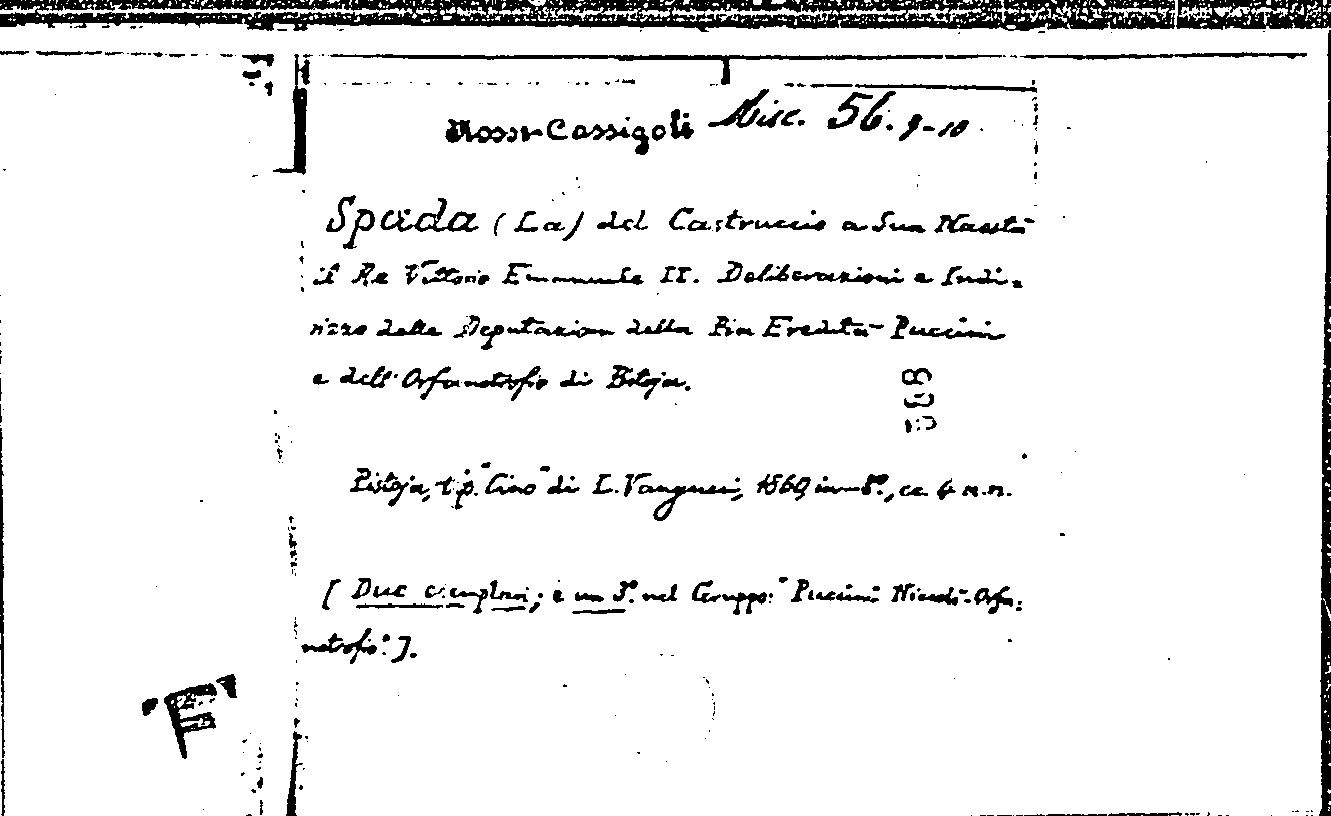 Rossi-Cassigoli Misc. 56. 9-10
Spada (La) del Castruccio a Sua Maestà
il Re Vittorio Emanuele II. Deliberazioni e Indi-
rizzo delle Deputazioni della Pia Eredità Puccini
e dell'Orfanotrofio di Pistoja.
Pistoja, tip. "Cino" di L. Vangucci, 1860, in-8º, cc. 4 n.n.
[Due esemplari; e un 3º. nel Gruppo: "Puccini Niccolò-Orfa-
notrofio".].
"F"